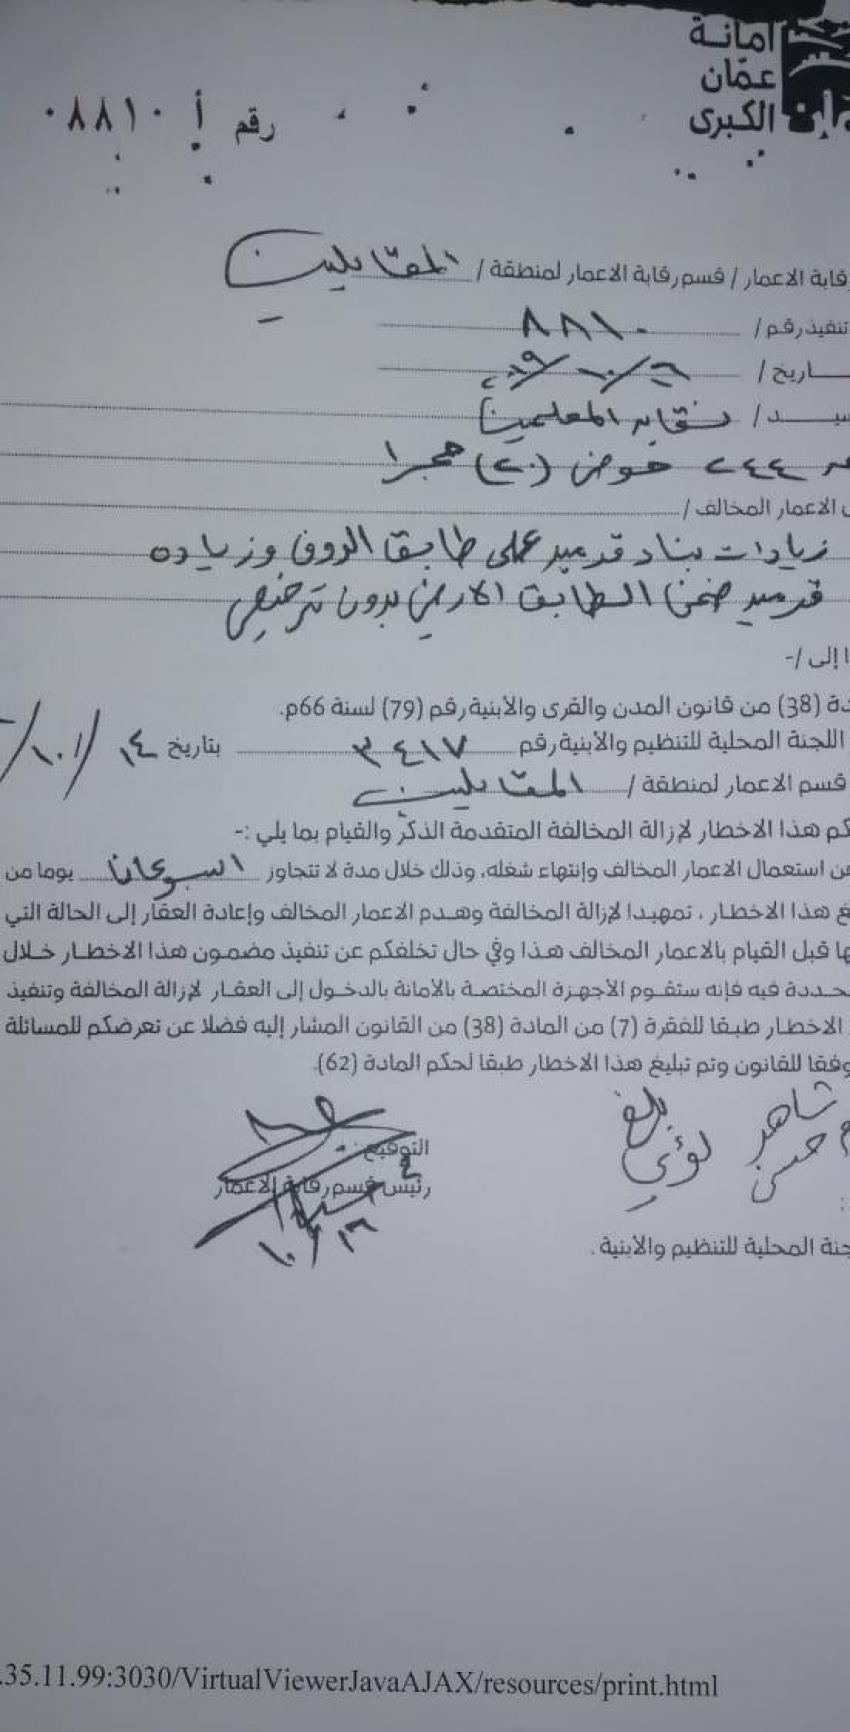 أمانة
عمّان
الكبرى
رقم أ ٠٨٨١٠
رقابة الاعمار / قسم رقابة الاعمار لمنطقة / المقابلين
تنفيذ رقم / ٨٨١٠
نقابة المعلمين
٢٤٤ حوض (٢٠) حجرا
الاعمار المخالف /
زيادات بناء قرميد على طابق الروف وزيادة
قرميد ضمن الطابق الارضي بدون ترخيص
إلى /-
(38) من قانون المدن والقرى والأبنية رقم (79) لسنة 66م.
اللجنة المحلية للتنظيم والأبنية رقم ٣٤١٧ بتاريخ ١٤/١٠/
قسم الاعمار لمنطقة / المقابلين
هذا الاخطار لإزالة المخالفة المتقدمة الذكر والقيام بما يلي :-
استعمال الاعمار المخالف وإنتهاء شغله، وذلك خلال مدة لا تتجاوز اسبوعان يوما من
هذا الاخطار ، تمهيدا لإزالة المخالفة وهدم الاعمار المخالف وإعادة العقار إلى الحالة التي
قبل القيام بالاعمار المخالف هذا وفي حال تخلفكم عن تنفيذ مضمون هذا الاخطار خلال
فيه فإنه ستقوم الأجهزة المختصة بالأمانة بالدخول إلى العقار لإزالة المخالفة وتنفيذ
الاخطار طبقا للفقرة (7) من المادة (38) من القانون المشار إليه فضلا عن تعرضكم للمسائلة
وفقا للقانون وتم تبليغ هذا الاخطار طبقا لحكم المادة (62).
شاهد
حسن
لؤي
التوقيع :
رئيس قسم رقابة الاعمار
المحلية للتنظيم والأبنية .
.35.11.99:3030/VirtualViewerJavaAJAX/resources/print.html